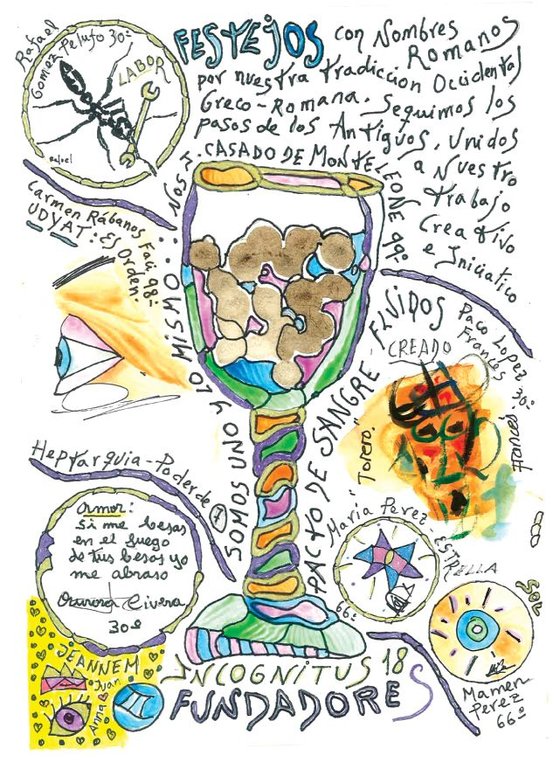 Rafael
Gomez Pelufo 30º
LABOR
Rafael
FESTEJOS con Nombres
Romanos
por nuestra tradiccion Occidental
Greco-Romana. Seguimos los
pasos de los Antigüos, Unidos
a Nuestro
Trabajo
Creativo
e Iniciatico
CASADO DE MONTELEONE 99º
Carmen Rábanos Faci 98º
UDYAT: Es
Orden.
SOMOS UNO Y LO MISMO
PACTO DE SANGRE FLUIDOS
CREADO
Paco Lopez
Francés
30º
"Torero"
Frances.
Heptarquia-Poder de
Amor:
Si me besas
en el fuego
de tus besos yo
me abraso
Civera
30º
Maria Perez - ESTRELLA
66º
Sol
Mamen
Perez
66º
JEANNEM
Juan
Anna
INCOGNITUS 18
FUNDADORES